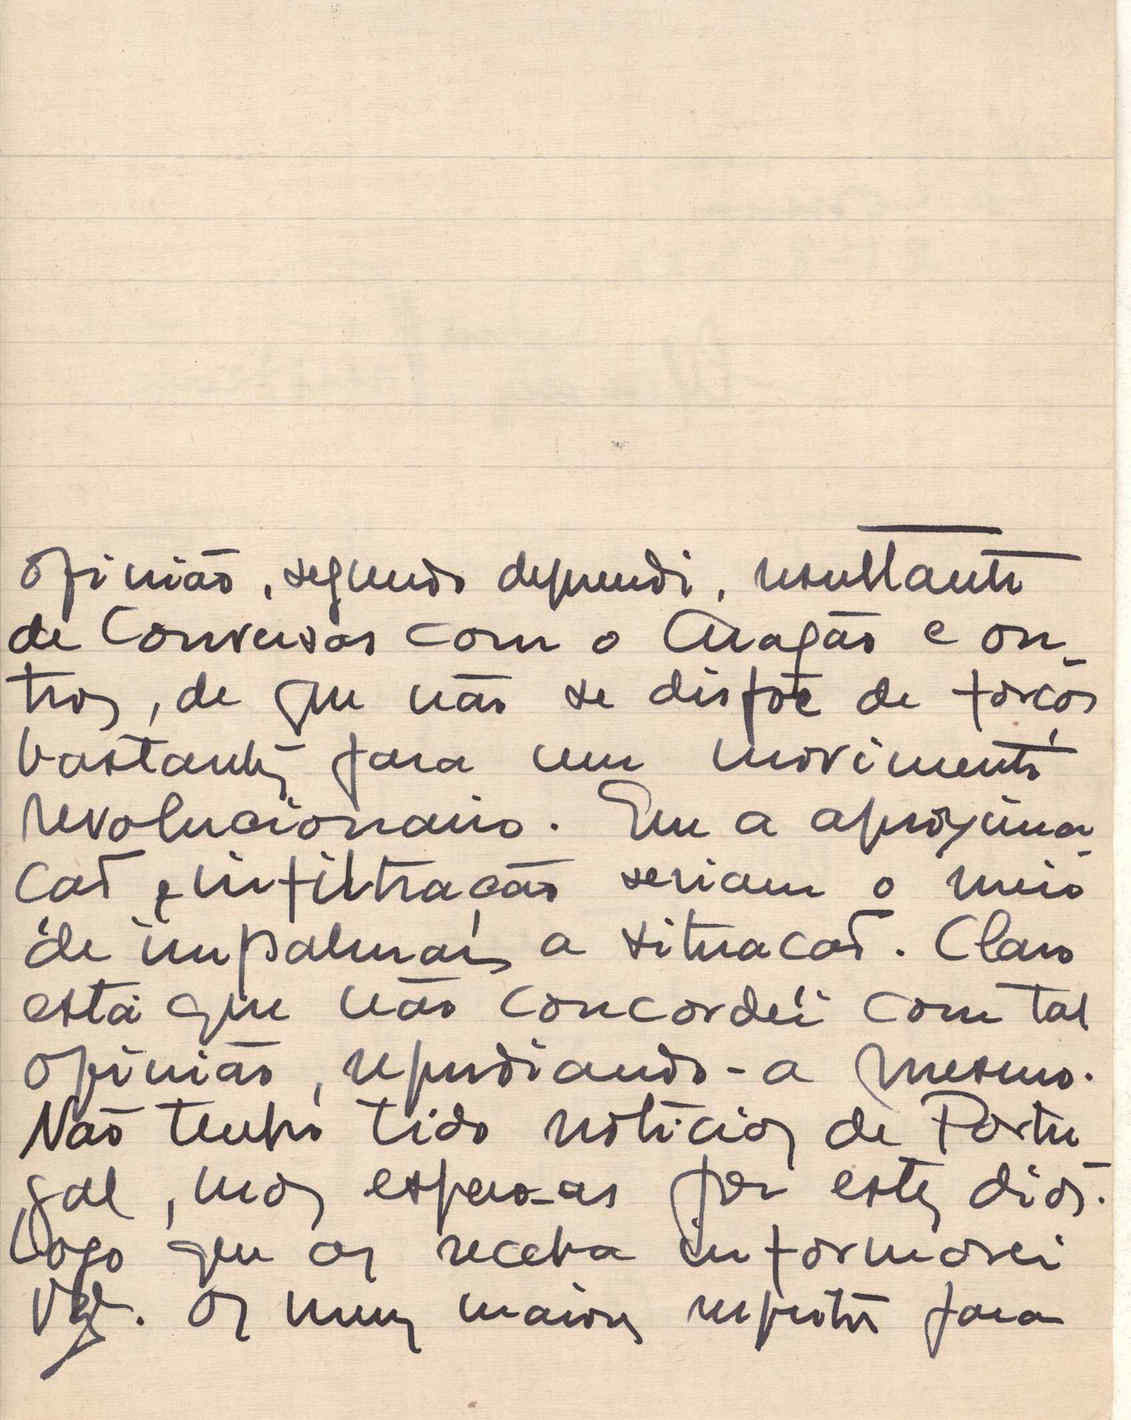 opinião, segundo depreendi, resultante
de conversas com o Aragão e ou-
tros, de que não se dispõe de forças
bastantes para um movimento
revolucionario. Que a aproxima-
ção e infiltração seriam o meio
de impalmar a situação. Claro
está que não concordei com tal
opinião, repudiando-a mesmo.
Não tenho tido noticias de Portu
gal, mas espero-as por estes dias.
Logo que as receba informarei
Os meus maiores respeitos para